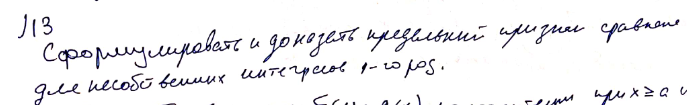 №13
Сформулировать и доказать предельный признак сравнения
для несобственных интегралов 1-го род.
при x ≥ a и